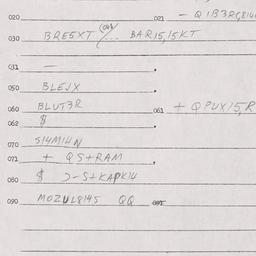 020 021 - Q1B3RG814
030 BRE5XT /... BAR15,15KT
031 —
050 BLEJX
060 BLUT3R 061 + QPUX15,R
062 $
070 S14M14N
071 + QS+RAM
080 $ >-S+KAPK14
090 MOZUL8145 QQ